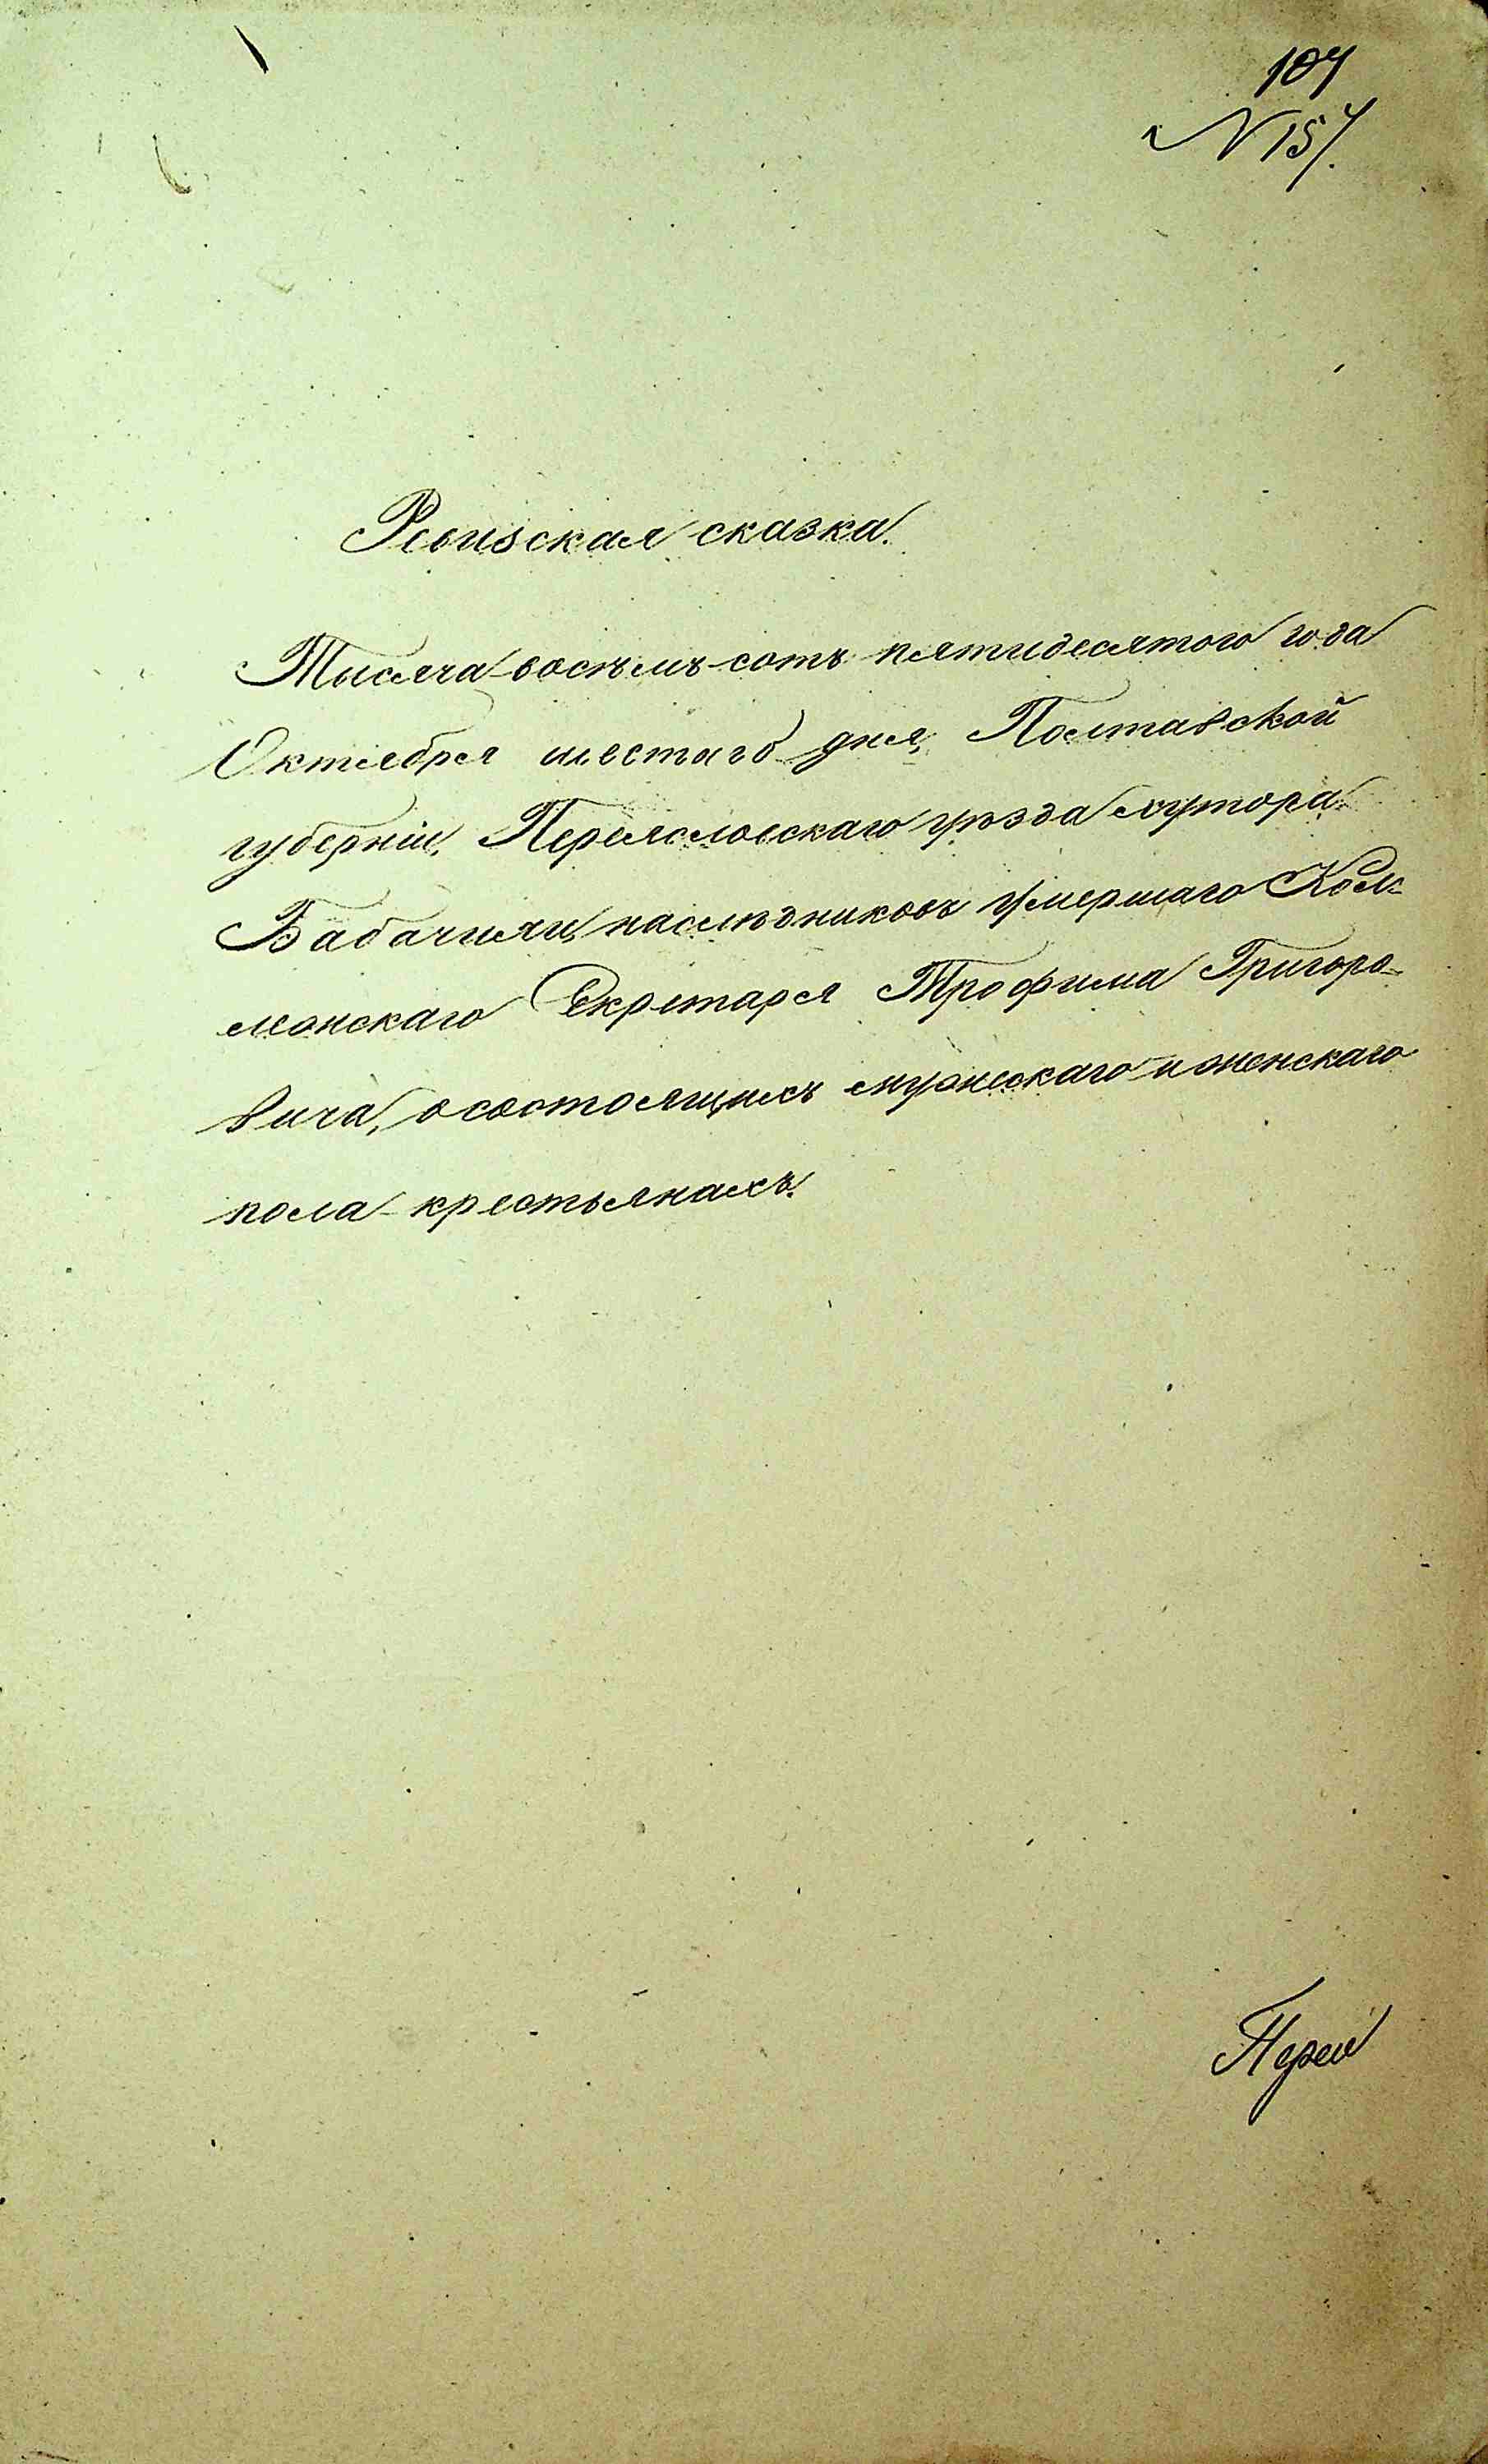 107
N 157.
Ревизская сказка.
Тысяча восѣмъ сотъ пятидесятого года
Октября шестаго дня, Полтавской
губерніи, Переяславскаго уѣзда хутора
Бабачихи, наслѣдниковъ умершаго Кол-
лежскаго Секретаря Трофима Григоро-
вича, о состоящихъ мужескаго и женскаго
пола крестьянахъ.